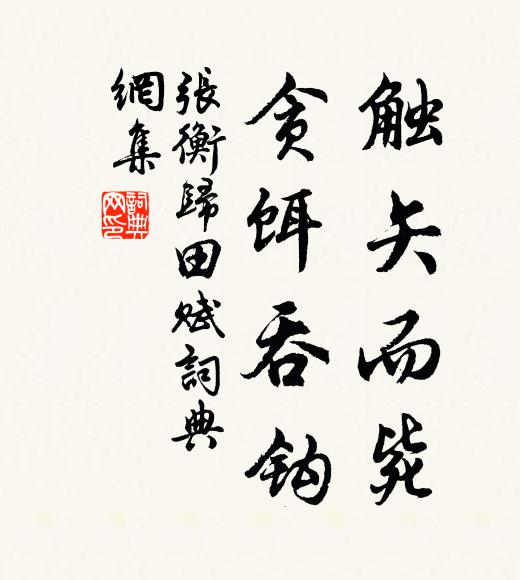 触矢而毙
贪饵吞钩
張衡歸田賦詞典
網集
詞典
网印